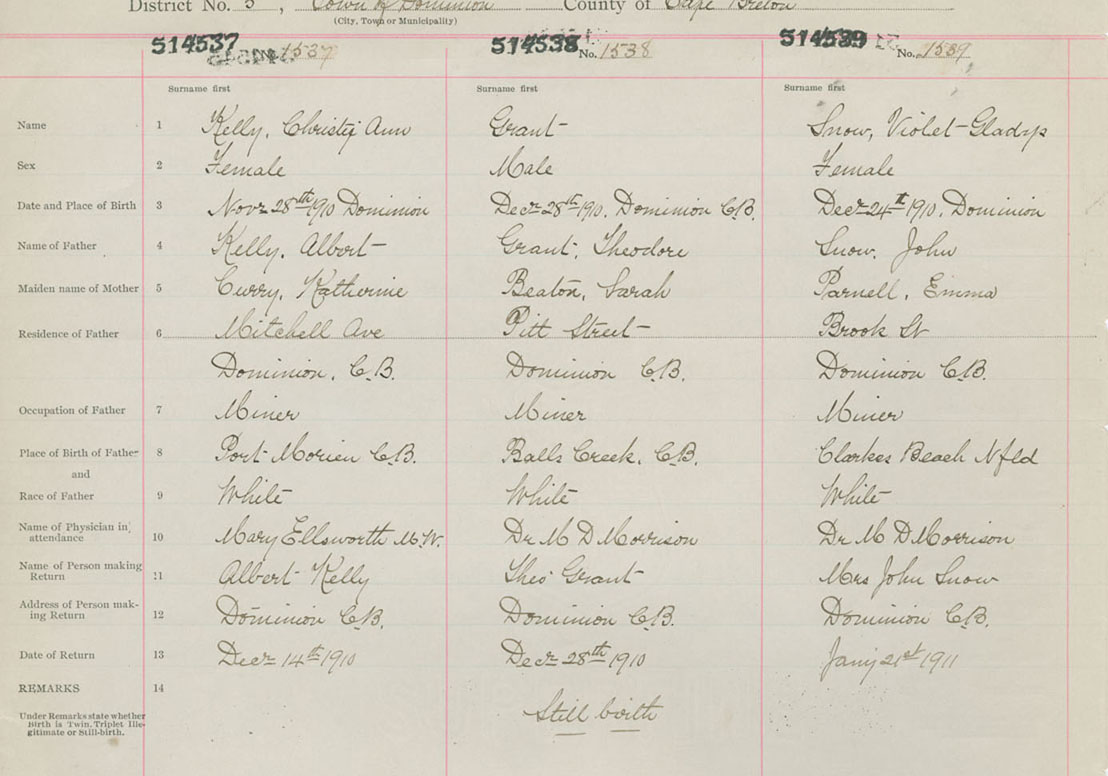 District No. 5, Town of Dominion County of Cape Breton
(City, Town or Municipality)
514537 1537 514538 No. 1538 514539 No. 1539
Surname first Surname first Surname first
Name 1 Kelly, Christy Ann Grant Snow, Violet-Gladys
Sex 2 Female Male Female
Date and Place of Birth 3 Novr 28th 1910 Dominion Decr 28th 1910. Dominion C.B. Decr 24th 1910. Dominion
Name of Father 4 Kelly, Albert Grant, Theodore Snow, John
Maiden name of Mother 5 Curry, Katherine Beaton, Sarah Parnell, Emma
Residence of Father 6 Mitchell Ave Pitt Street Brook St
Dominion, C.B. Dominion C.B. Dominion C.B.
Occupation of Father 7 Miner Miner Miner
Place of Birth of Father 8 Port Morien C.B. Balls Creek, C.B. Clarkes Beach Nfld
and
Race of Father 9 White White White
Name of Physician in attendance 10 Mary Ellsworth M.W. Dr M D Morrison Dr M D Morrison
Name of Person making Return 11 Albert Kelly Theo Grant Mrs John Snow
Address of Person mak-
ing Return 12 Dominion C.B. Dominion C.B. Dominion C.B.
Date of Return 13 Decr 14th 1910 Decr 28th 1910 Jany 21st 1911
REMARKS 14
Under Remarks state whether
Birth is Twin, Triplet Ille-
gitimate or Still-birth.
Still birth